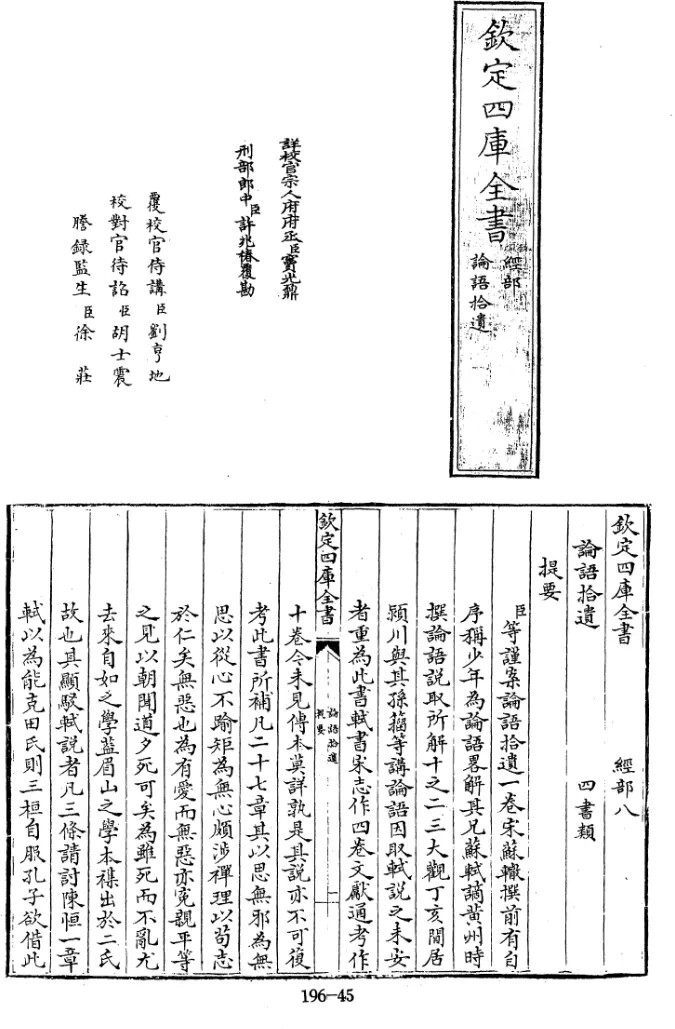 欽定四庫全書
經部
論語拾遺
詳校官宗人府府丞臣竇光鼐
刑部郎中臣許兆椿覆勘
覆校官侍講臣劉亨地
校對官待詔臣胡士震
謄録監生臣徐莊
欽定四庫全書 經部八
論語拾遺 四書類
提要
臣等謹案論語拾遺一卷宋蘇轍撰前有自
序稱少年為論語畧解其兄蘇軾謫黄州時
撰論語說取所解十之二三大觀丁亥閒居
潁川與其孫籀等講論語因取軾說之未安
者重為此書軾書宋志作四卷文獻通考作
欽定四庫全書
論語拾遺
提要
一
十卷今未見傳本莫詳孰是其說亦不可復
考此書所補凡二十七章其以思無邪為無
思以從心不踰矩為無心頗涉禪理以苟志
於仁矣無惡也為有愛而無惡亦寃親平等
之見以朝聞道夕死可矣為雖死而不亂尤
去來自如之學蓋眉山之學本襍出於二氏
故也其顯駮軾說者凡三條請討陳恒一章
軾以為能克田氏則三桓自服孔子欲借此
196-45